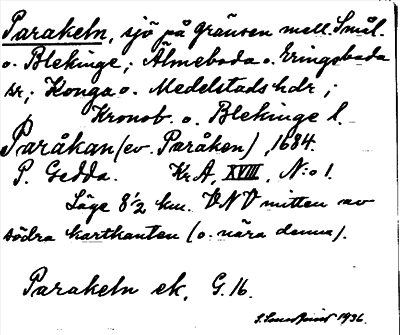 Parakeln, sjö på gränsen mell. Smål.
o. Blekinge; Älmeboda o. Eringsboda
sr; Konga o. Medelstads hdr;
Kronob. o. Blekinge l.
Paråkan (ev. Paråken), 1684.
P. Gedda. Kr.A, XVIII, N:o 1.
Läge 8 1/2 km. VNV mitten av
södra kartkanten (o. nära denna).
Parakeln ek. G. 16.
1936.